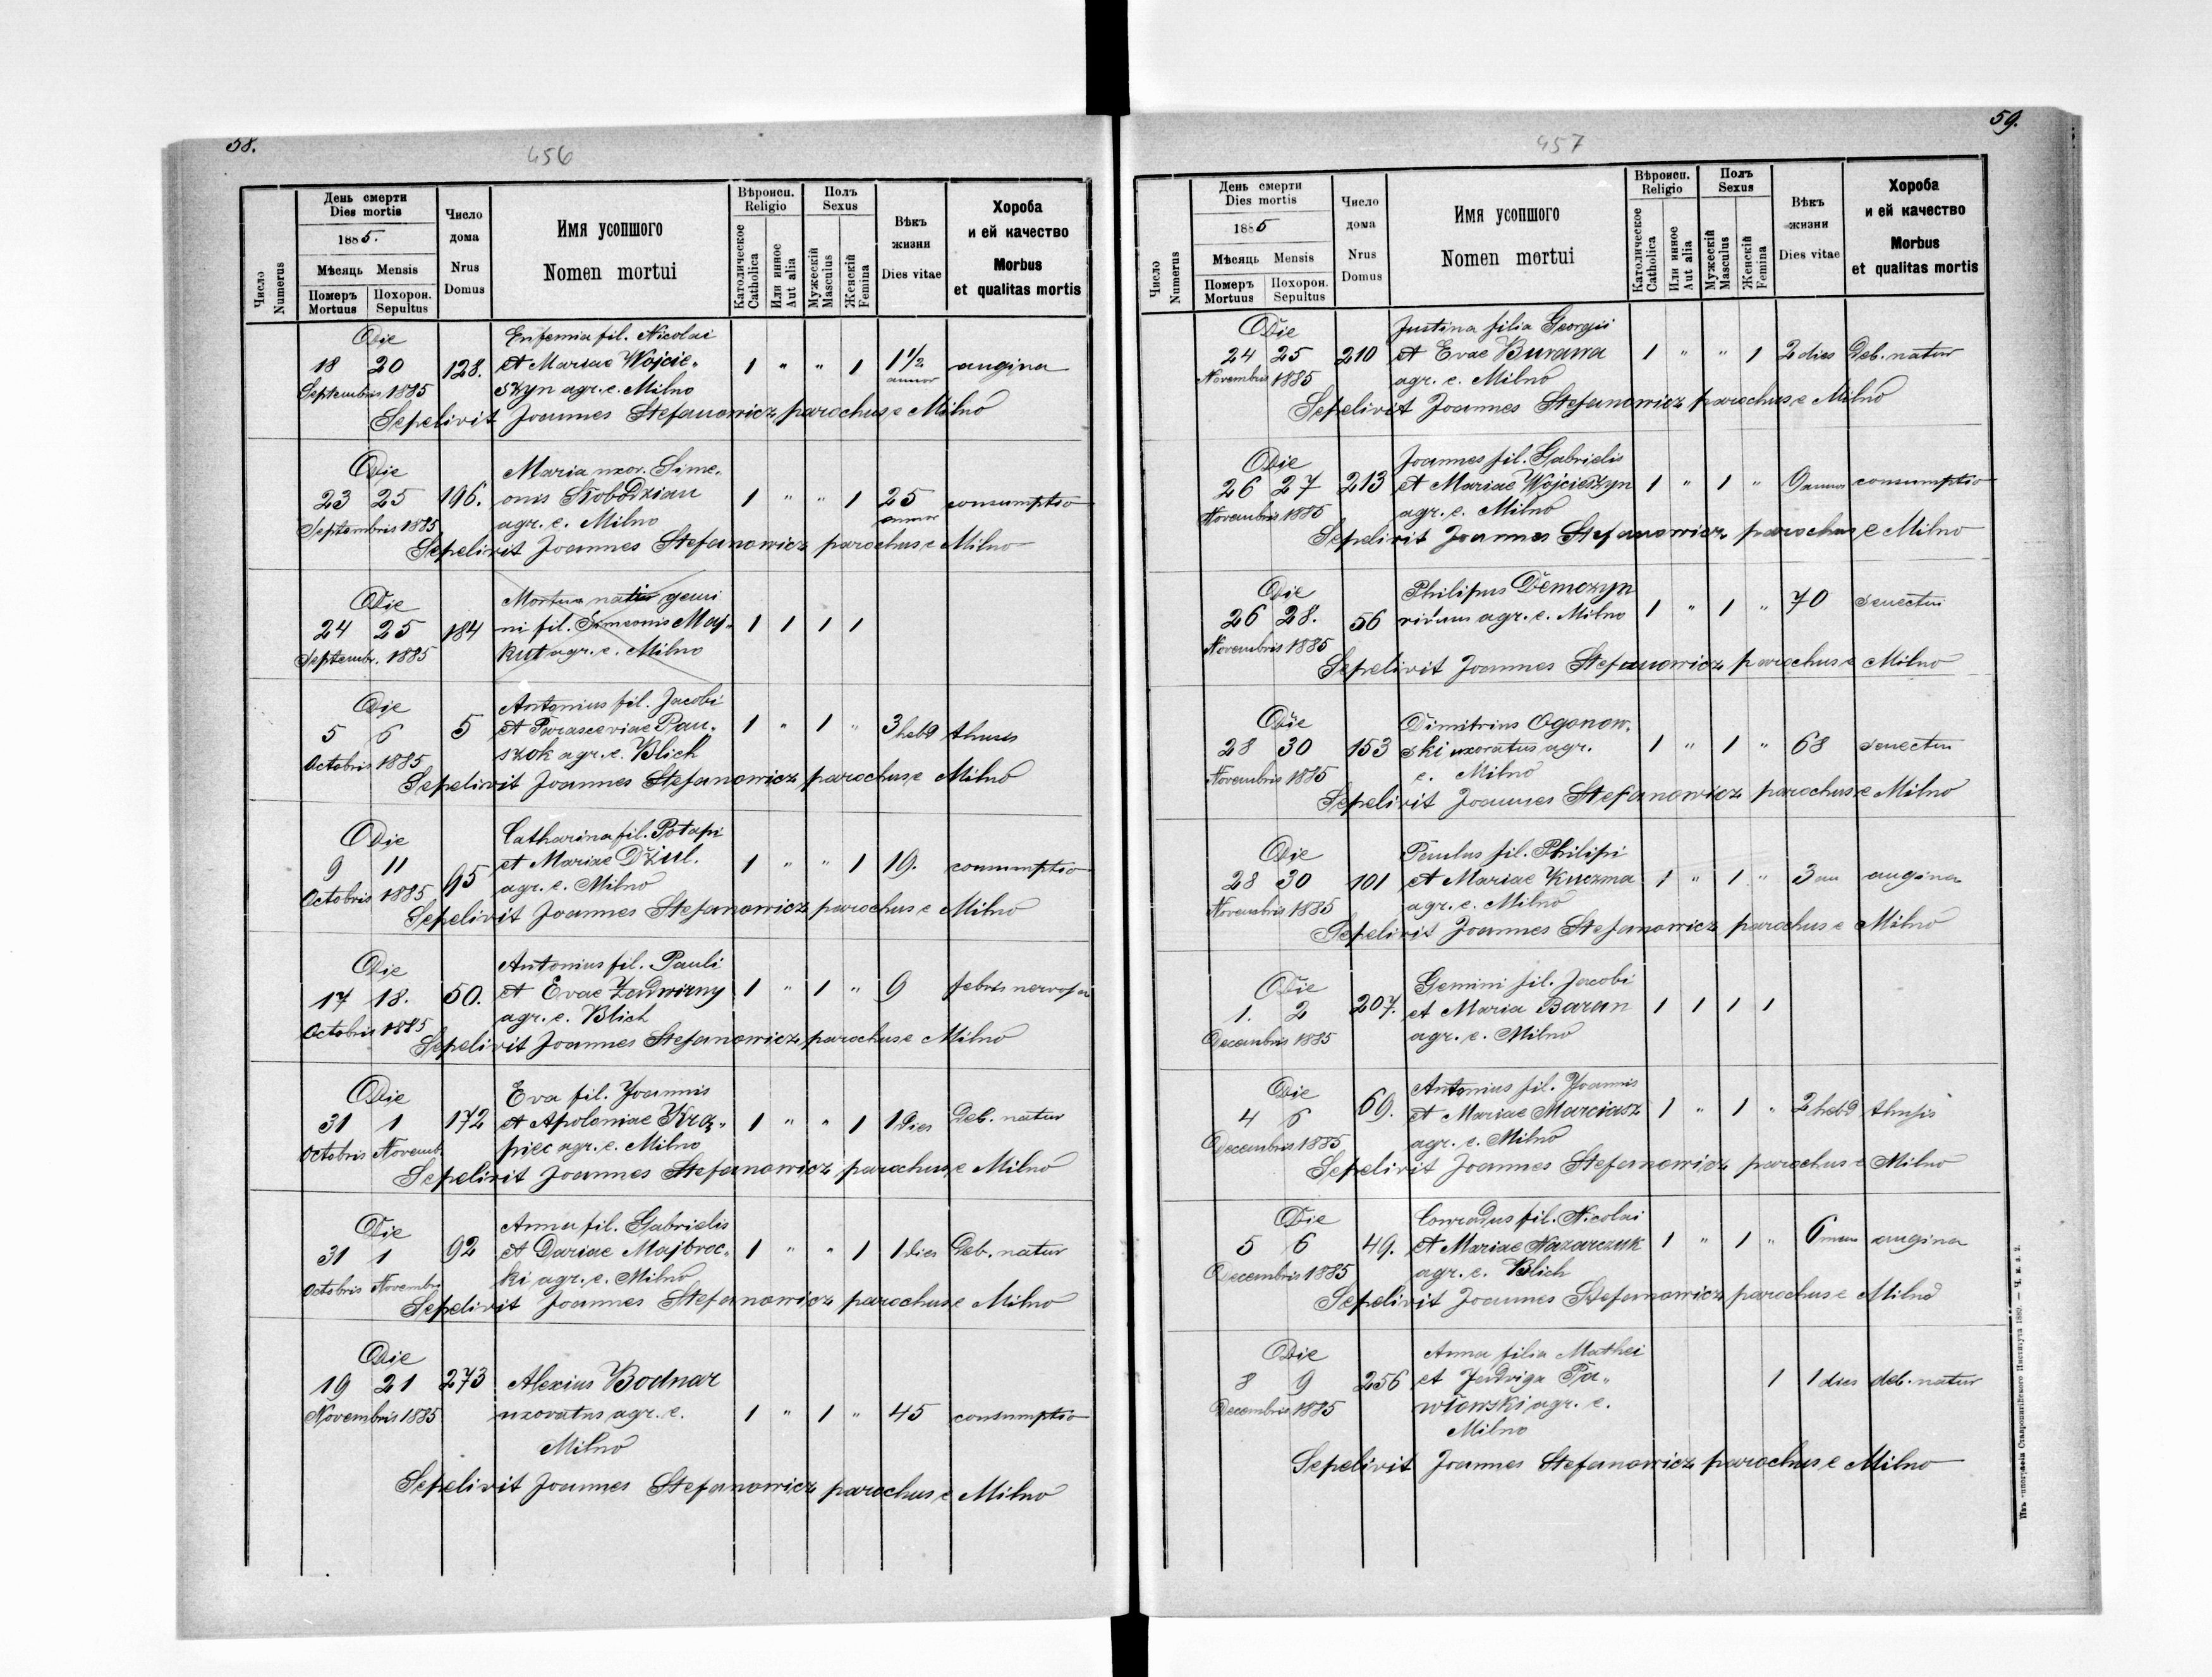 58.
456
Число
Numerus
День смерти
Dies mortis
1885.
Мѣсяць Mensis
Померъ Похорон.
Mortuus Sepultus
Число
дома
Nrus
Domus
Имя усопшого
Nomen mortui
Вѣроисп.
Religio
Католическое
Catholica
Или инное
Aut alia
Полъ
Sexus
Мужескій
Masculus
Женскій
Femina
Вѣкъ
жизни
Dies vitae
Хороба
и ей качество
Morbus
et qualitas mortis
Die Eufemia fil. Nicolai
18 20 128. et Mariae Wojcie„ 1 " " 1 1 1/2 angina
Septembris 1885 szyn agr. e. Milno annor
Sepelivit Joannes Stefanowicz parochus e Milno
Die Maria uxor. Sime„
23 25 196. onis Słobodzian 1 " " 1 25 consumptio
Septembris 1885 agr. e. Milno annor
Sepelivit Joannes Stefanowicz parochus e Milno
Die Mortuo nati gemi
24 25 184 ni fil. Simeonis Maj„ 1 1 1 1
Septembr. 1885 kut agr. e. Milno
Die Antonius fil. Jacobi
5 6 5 et Parasceviae Pau„ 1 " 1 " 3 hebd thusis
Octobris 1885 szok agr. e. Blich
Sepelivit Joannes Stefanowicz parochus e Milno
Die Catharina fil. Potapi
9 11 95 et Mariae Dziul. 1 " " 1 19. consumptio
Octobris 1885 agr. e. Milno
Sepelivit Joannes Stefanowicz parochus e Milno
Die Antonius fil. Pauli
17 18. 50. et Evae Zadwirny 1 " 1 " 9 febris nervosa
Octobris 1885 agr. e. Blich
Sepelivit Joannes Stefanowicz parochus e Milno
Die Eva fil. Joannis
31 1 172 et Apoloniae Krą„ 1 " " 1 1 dies Deb. natur
Octobris Novemb. piec agr. e. Milno
Sepelivit Joannes Stefanowicz parochus e Milno
Die Anna fil. Gabrielis
31 1 92 et Dariae Majbroc„ 1 " " 1 1 dies Deb. natur
Octobris Novembris ki agr. e. Milno
Sepelivit Joannes Stefanowicz parochus e Milno
Die
19 21 273 Alexius Bodnar
Novembris 1885 uxoratus agr. e. 1 " 1 " 45 consumptio
Milno
Sepelivit Joannes Stefanowicz parochus e Milno
59.
457
Число
Numerus
День смерти
Dies mortis
1885
Мѣсяць Mensis
Померъ Похорон.
Mortuus Sepultus
Число
дома
Nrus
Domus
Имя усопшого
Nomen mortui
Вѣроисп.
Religio
Католическое
Catholica
Или инное
Aut alia
Полъ
Sexus
Мужескій
Masculus
Женскій
Femina
Вѣкъ
жизни
Dies vitae
Хороба
и ей качество
Morbus
et qualitas mortis
Die Justina filia Georgii
24 25 210 et Evae Burawa 1 " " 1 2 dies Deb. natur
Novembris 1885 agr. e. Milno
Sepelivit Joannes Stefanowicz parochus e Milno
Die Joannes fil. Gabrielis
26 27 213 et Mariae Wojcieszyn 1 " 1 " 9 annor consumptio
Novembris 1885 agr. e. Milno
Sepelivit Joannes Stefanowicz parochus e Milno
Die Philipus Demczyn
26 28. 56 viduus agr. e. Milno 1 " 1 " 70 senectus
Novembris 1885
Sepelivit Joannes Stefanowicz parochus e Milno
Die Dimitrius Ogonow„
28 30 153 ski uxoratus agr. 1 " 1 " 68 senectus
Novembris 1885 e. Milno
Sepelivit Joannes Stefanowicz parochus e Milno
Die Paulus fil. Philipi
28 30 101 et Mariae Kuczma 1 " 1 " 3 an angina
Novembris 1885 agr. e. Milno
Sepelivit Joannes Stefanowicz parochus e Milno
Die Gemini fil. Jacobi
1. 2 207. et Maria Baran 1 1 1 1
Decembris 1885 agr. e. Milno
Die Antonius fil. Joannis
4 6 69. et Mariae Marciasz 1 " 1 " 2 hebd thusis
Decembris 1885 agr. e. Milno
Sepelivit Joannes Stefanowicz parochus e Milno
Die Conradus fil. Nicolai
5 6 49. et Mariae Nazarczuk 1 " 1 " 6 mens angina
Decembris 1885 agr. e. Blich
Sepelivit Joannes Stefanowicz parochus e Milno
Die Anna filia Mathei
8 9 256 et Jadviga Pa„ 1 1 dies deb. natur
Decembris 1885 włowski agr. e.
Milno
Sepelivit Joannes Stefanowicz parochus e Milno
Изъ типографіи Ставропигійского Института 1880. — Ч. н. з. 2.